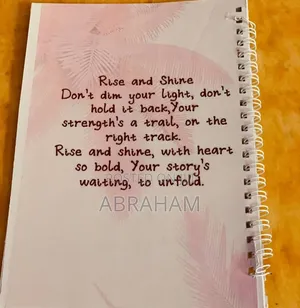 Rise and Shine
Don't dim your light, don't
hold it back,Your
strength's a trail, on the
right track.
Rise and shine, with heart
so bold, Your story's
waiting, to unfold.
ABRAHAM